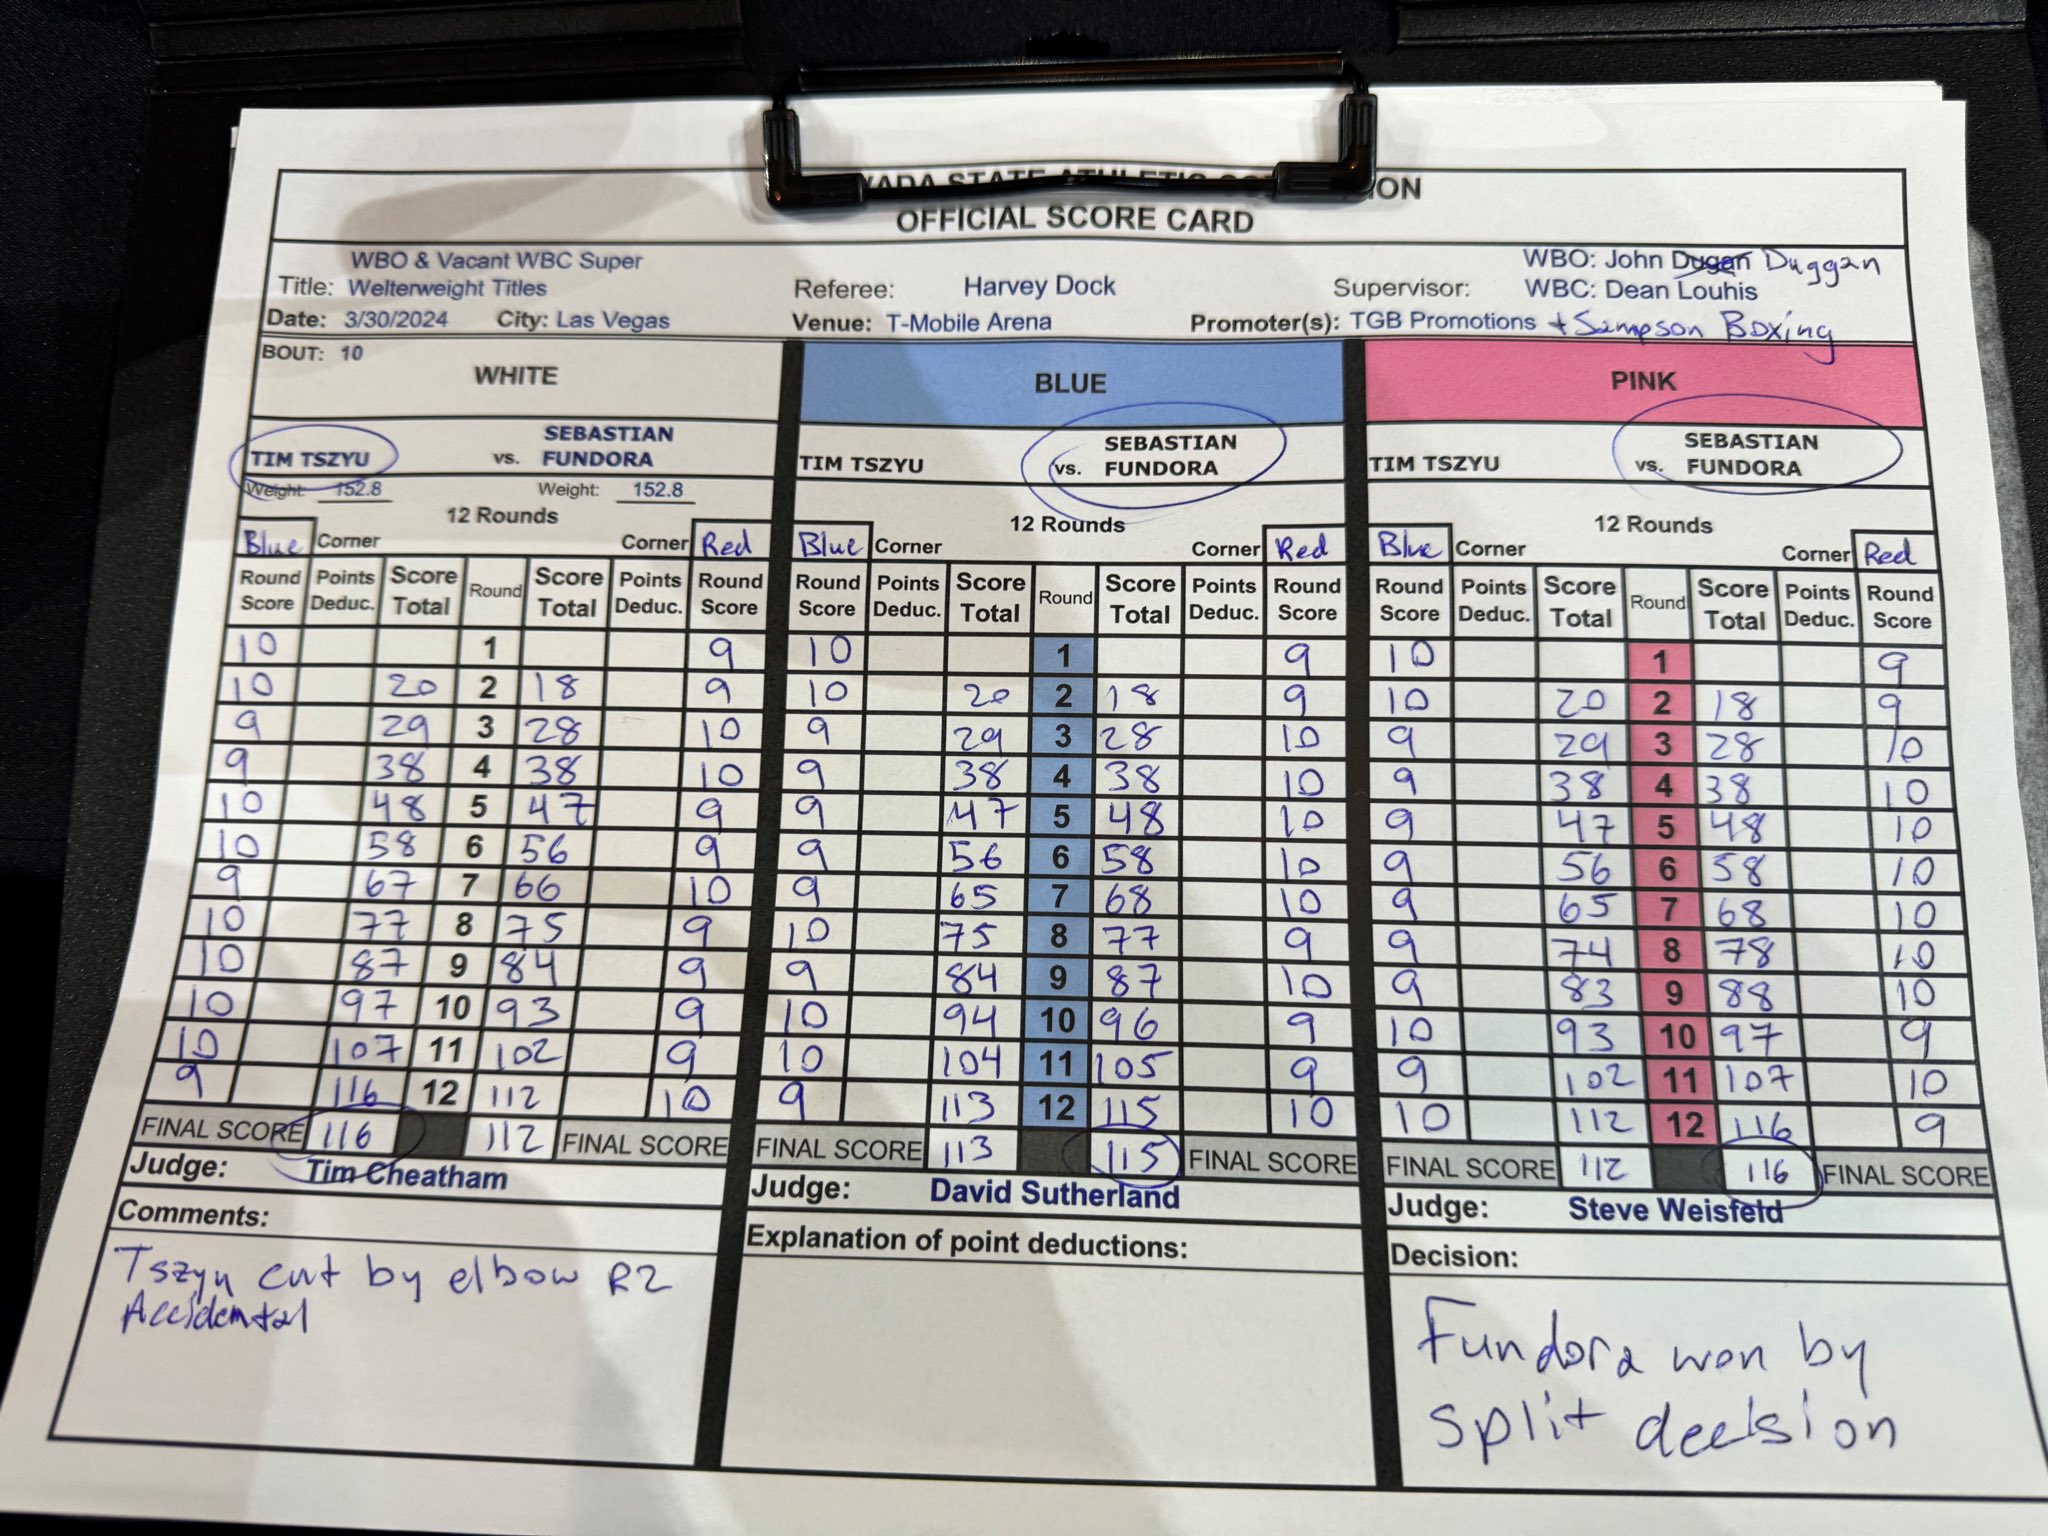 OFFICIAL SCORE CARD
WBO & Vacant WBC Super
Title: Welterweight Titles
Referee: Harvey Dock
Supervisor: WBO: John Dugan Duggan
WBC: Dean Louhis
Date: 3/30/2024 City: Las Vegas Venue: T-Mobile Arena Promoter(s): TGB Promotions + Sampson Boxing
BOUT: 10
WHITE BLUE PINK
TIM TSZYU vs. SEBASTIAN FUNDORA TIM TSZYU vs. SEBASTIAN FUNDORA TIM TSZYU vs. SEBASTIAN FUNDORA
Weight: 152.8 Weight: 152.8
12 Rounds 12 Rounds 12 Rounds
Blue Corner Corner Red Blue Corner Corner Red Blue Corner Corner Red
Round Score Points Deduc. Score Total Round Score Total Points Deduc. Round Score Round Score Points Deduc. Score Total Round Score Total Points Deduc. Round Score Round Score Points Deduc. Score Total Round Score Total Points Deduc. Round Score
10 1 9 10 1 9 10 1 9
10 20 2 18 9 10 20 2 18 9 10 20 2 18 9
9 29 3 28 10 9 29 3 28 10 9 29 3 28 10
9 38 4 38 10 9 38 4 38 10 9 38 4 38 10
10 48 5 47 9 9 47 5 48 10 9 47 5 48 10
10 58 6 56 9 9 56 6 58 10 9 56 6 58 10
9 67 7 66 10 9 65 7 68 10 9 65 7 68 10
10 77 8 75 9 10 75 8 77 9 9 74 8 78 10
10 87 9 84 9 9 84 9 87 10 9 83 9 88 10
10 97 10 93 9 10 94 10 96 9 10 93 10 97 9
10 107 11 102 9 10 104 11 105 9 9 102 11 107 10
9 116 12 112 10 9 113 12 115 10 10 112 12 116 9
FINAL SCORE 116 112 FINAL SCORE FINAL SCORE 113 115 FINAL SCORE FINAL SCORE 112 116 FINAL SCORE
Judge: Tim Cheatham Judge: David Sutherland Judge: Steve Weisfeld
Comments: Explanation of point deductions: Decision:
Tszyu cut by elbow R2
Accidental
Fundora won by
split decision